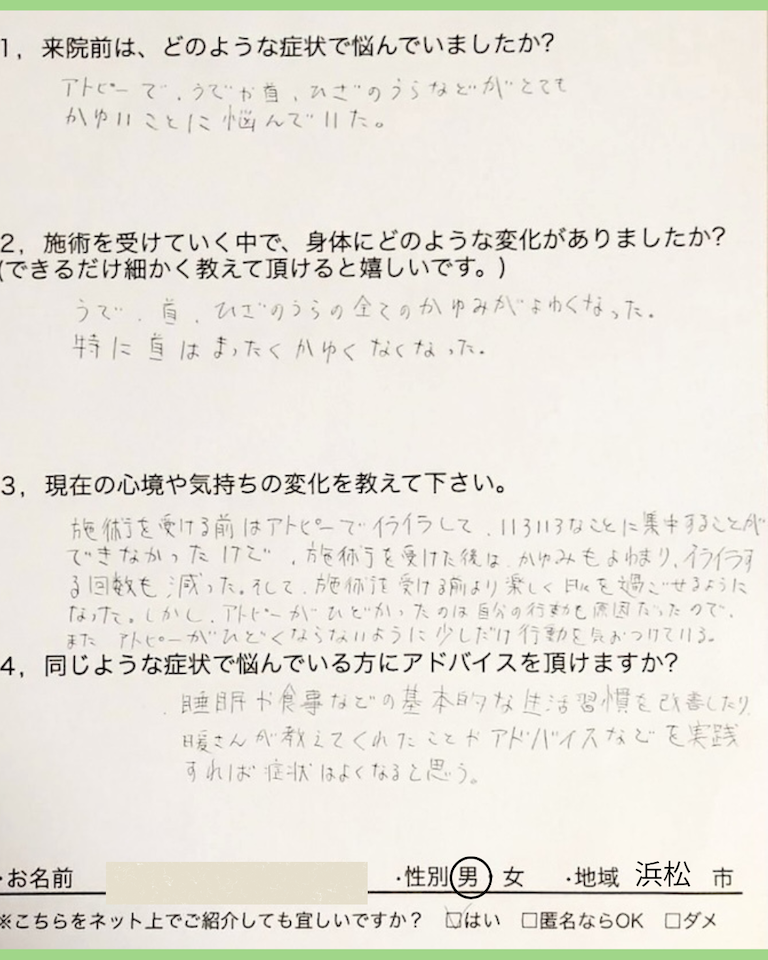 1，来院前は、どのような症状で悩んでいましたか?
アトピーで、うでや首、ひざのうらなどがとても
かゆいことに悩んでいた。
2，施術を受けていく中で、身体にどのような変化がありましたか?
(できるだけ細かく教えて頂けると嬉しいです。)
うで、首、ひざのうらの全てのかゆみがよわくなった。
特に首はまったくかゆくなくなった。
3，現在の心境や気持ちの変化を教えて下さい。
施術を受ける前はアトピーでイライラして、いろいろなことに集中することが
できなかったけど、施術を受けた後は、かゆみもよわまり、イライラす
る回数も減った。そして、施術を受ける前より楽しく日々を過ごせるように
なった。しかし、アトピーがひどかったのは自分の行動も原因だったので、
また アトピーがひどくならないように少しだけ行動を気おつけている。
4，同じような症状で悩んでいる方にアドバイスを頂けますか?
睡眠や食事などの基本的な生活習慣を改善したり
暖さんが教えてくれたことやアドバイスなどを実践
すれば症状はよくなると思う。
・お名前 ・性別 男 女 ・地域 浜松 市
※こちらをネット上でご紹介しても宜しいですか? ☑はい □匿名ならOK □ダメ